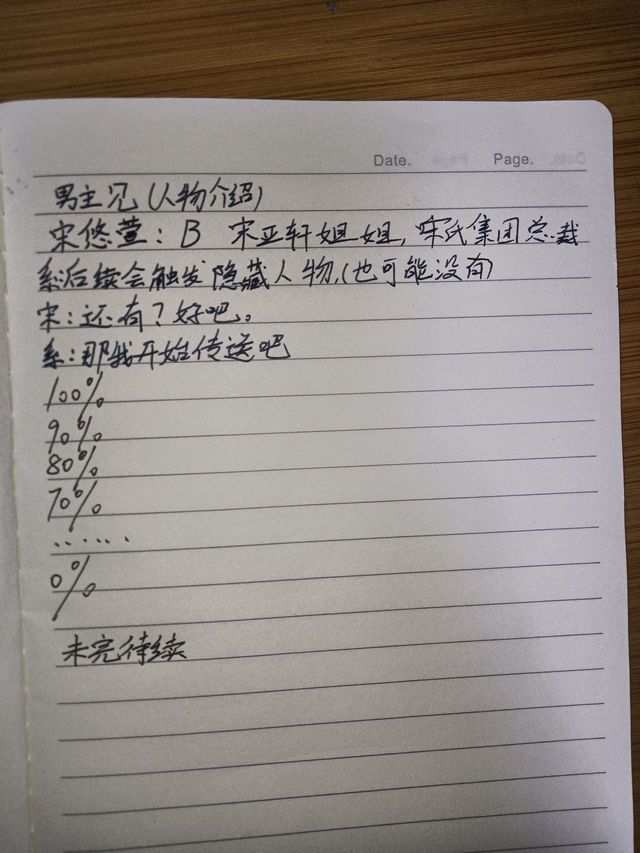 Date. Page.
男主兄(人物介绍)
宋悠萱：B 宋亚轩姐姐，宋氏集团总裁
系:后续会触发隐藏人物,(也可能没有)
宋：还有？好吧。
系：那我开始传送吧
100%
90%
80%
70%
.......
0%
未完待续